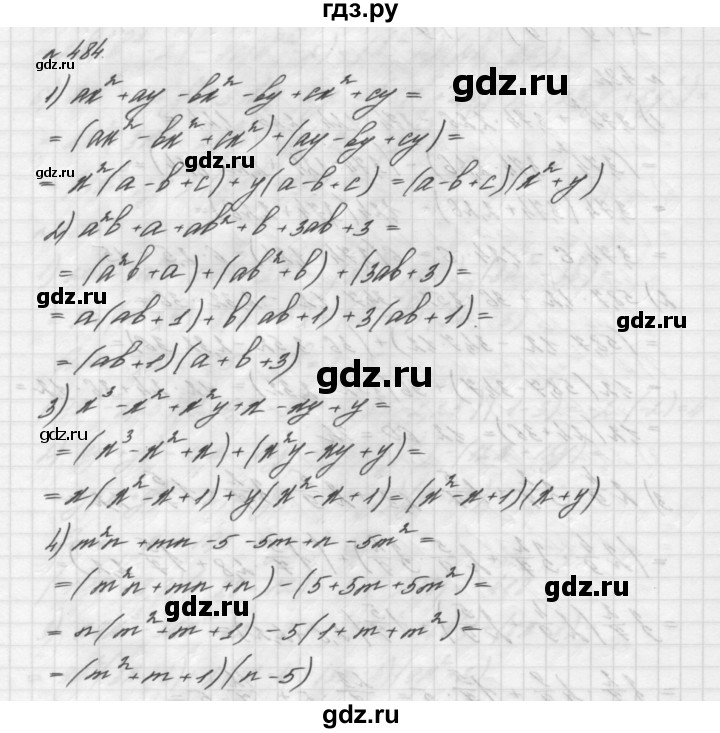 гдз.ру
№ 484.
gdz.ru
1) ax² + ay - bx² - by + cx² + cy =
gdz.ru
= (ax² - bx² + cx²) + (ay - by + cy) =
gdz.ru
gdz.ru
= x²(a - b + c) + y(a - b + c) = (a - b + c)(x² + y)
2) a²b + a + ab² + b + 3ab + 3 =
= (a²b + a) + (ab² + b) + (3ab + 3) =
gdz.ru
= a(ab + 1) + b(ab + 1) + 3(ab + 1) =
gdz.ru
= (ab + 1)(a + b + 3)
gdz.ru
3) x³ - x² + x²y + x - xy + y =
gdz.ru
= (x³ - x² + x) + (x²y - xy + y) =
= x(x² - x + 1) + y(x² - x + 1) = (x² - x + 1)(x + y)
4) m²n + mn - 5 - 5m + n - 5m² =
= (m²n + mn + n) - (5 + 5m + 5m²) =
gdz.ru
gdz.ru
= n(m² + m + 1) - 5(1 + m + m²) =
= (m² + m + 1)(n - 5)
gdz.ru